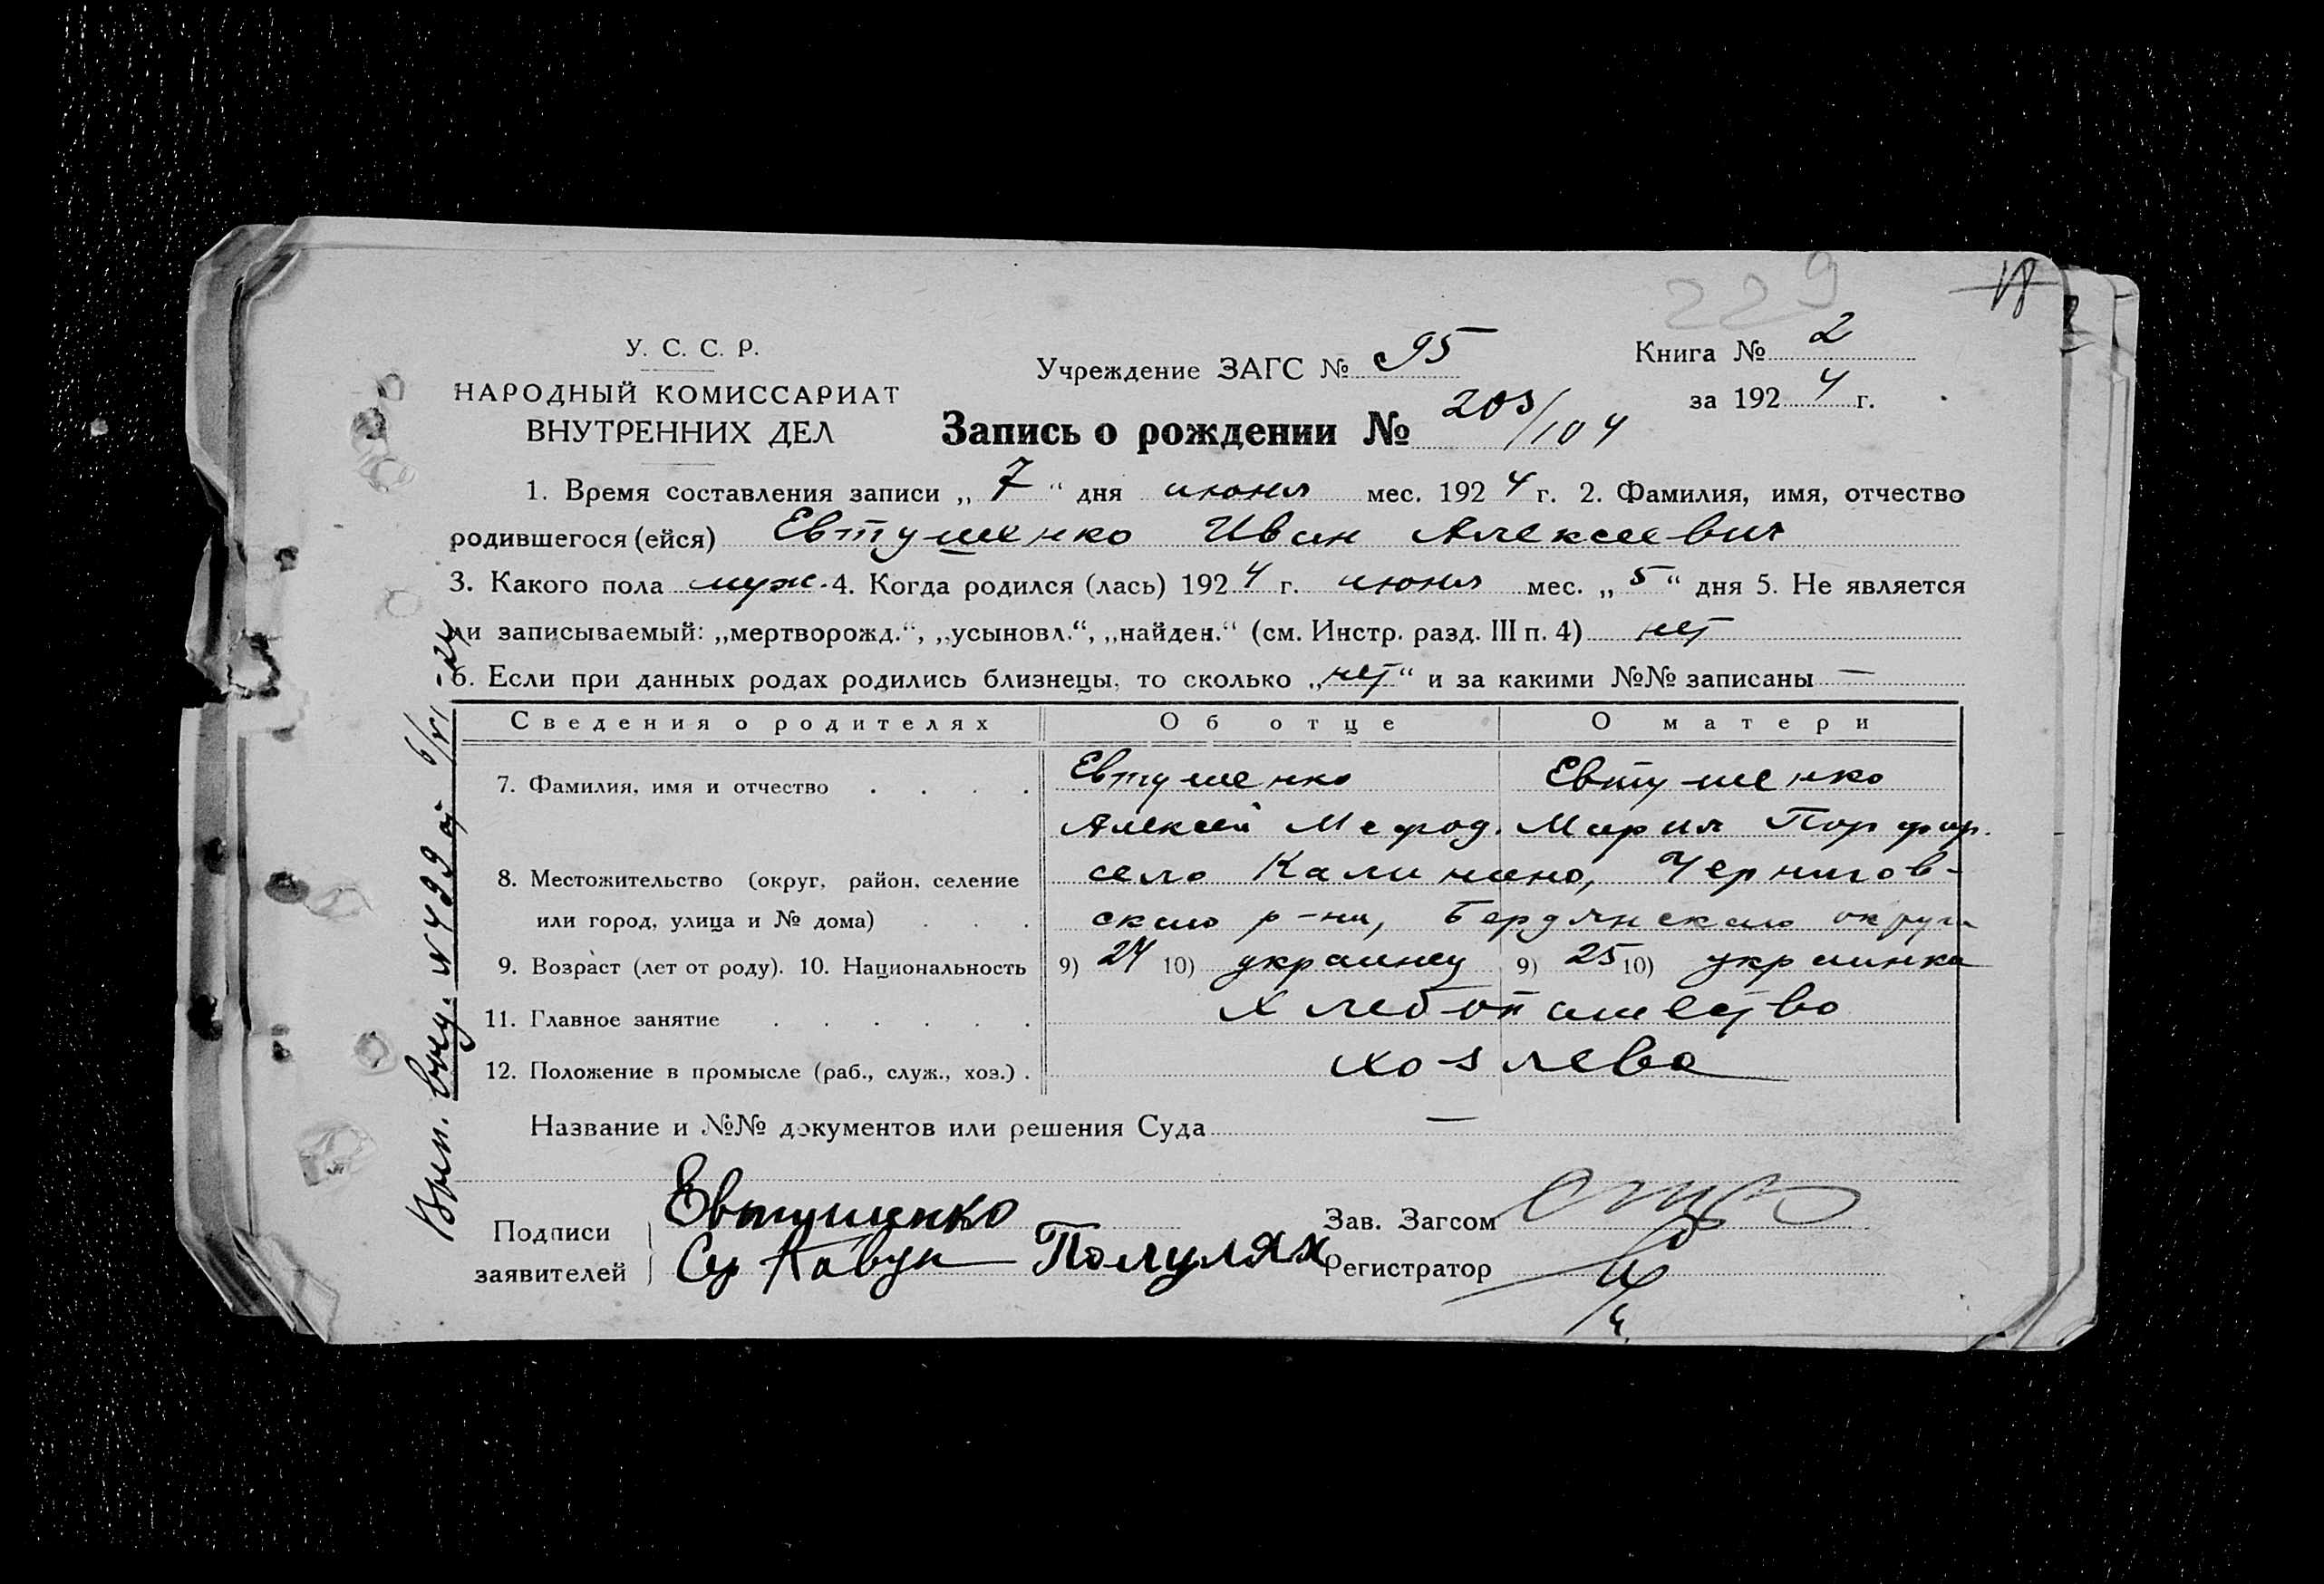 229
18
У. С. С. Р.
НАРОДНЫЙ КОМИССАРИАТ
ВНУТРЕННИХ ДЕЛ
Учреждение ЗАГС № 95
Книга № 2
за 1924 г.
Запись о рождении № 203/104
1. Время составления записи „ 7 “ дня июня мес. 1924 г. 2. Фамилия, имя, отчество
родившегося (ейся) Евтушенко Иван Алексеевич
3. Какого пола муж. 4. Когда родился (лась) 1924 г. июня мес. „ 5 “ дня 5. Не является
ли записываемый: „мертворожд.“, „усыновл.“, „найден.“ (см. Инстр. разд. III п. 4) нет
6. Если при данных родах родились близнецы, то сколько „нет“ и за какими №№ записаны —
Сведения о родителях Об отце О матери
7. Фамилия, имя и отчество . . . . Евтушенко Евтушенко
Алексей Мефод. Мария Порфир.
8. Местожительство (округ, район, селение село Калинино, Чернигов-
или город, улица и № дома) . . . ского р-на, Бердянского округа
9. Возраст (лет от роду). 10. Национальность 9) 24 10) украинец 9) 25 10) украинка
11. Главное занятие . . . . . . хлебопашество
12. Положение в промысле (раб., служ., хоз.) . хозяева
Название и №№ документов или решения Суда —
Подписи
заявителей
Евтушенко
Кавун Полулях
Зав. Загсом
Регистратор
Вып. выд. № 499 от